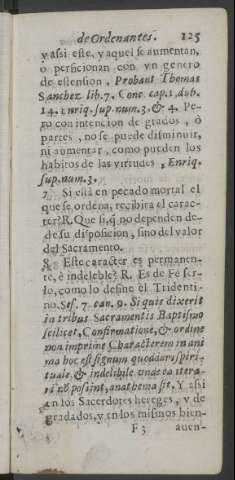 de Ordenantes. 125
y assi este, y aquel se aumentan,
o perficionan con vn genero
de estension, Probant Thomas
Sanchez lib. 7. Conc. cap. 1. dub.
14. Enriq. sup. num. 3. & 4. Pe-
ro con intencion de grados, ò
partes, no se puede disminuir,
ni aumentar, como pueden los
habitos de las virtudes, Enriq.
sup. num. 3.
7 Si està en pecado mortal el
que se ordena, recibira el carac-
ter? R. Que si, q̃ no dependen de-
de su disposicion, sino del valor
del Sacramento.
8 Este caracter es permanen-
te, è indeleble? R. Es de Fè ser-
lo, como lo define el Tridenti-
no. Ses. 7. can. 9. Si quis dixerit
in tribus Sacramentis Baptismo
scilicet, Confirmatione, & ordine
non imprime Characterem in ani
ma hoc est signum quoddam spiri-
tuale, & indelibile unde ea itera-
ri nō posint, anathema sit. Y assi
en los Sacerdotes hereges, y de
gradados, y en los mismos bien-
F 3 auen-